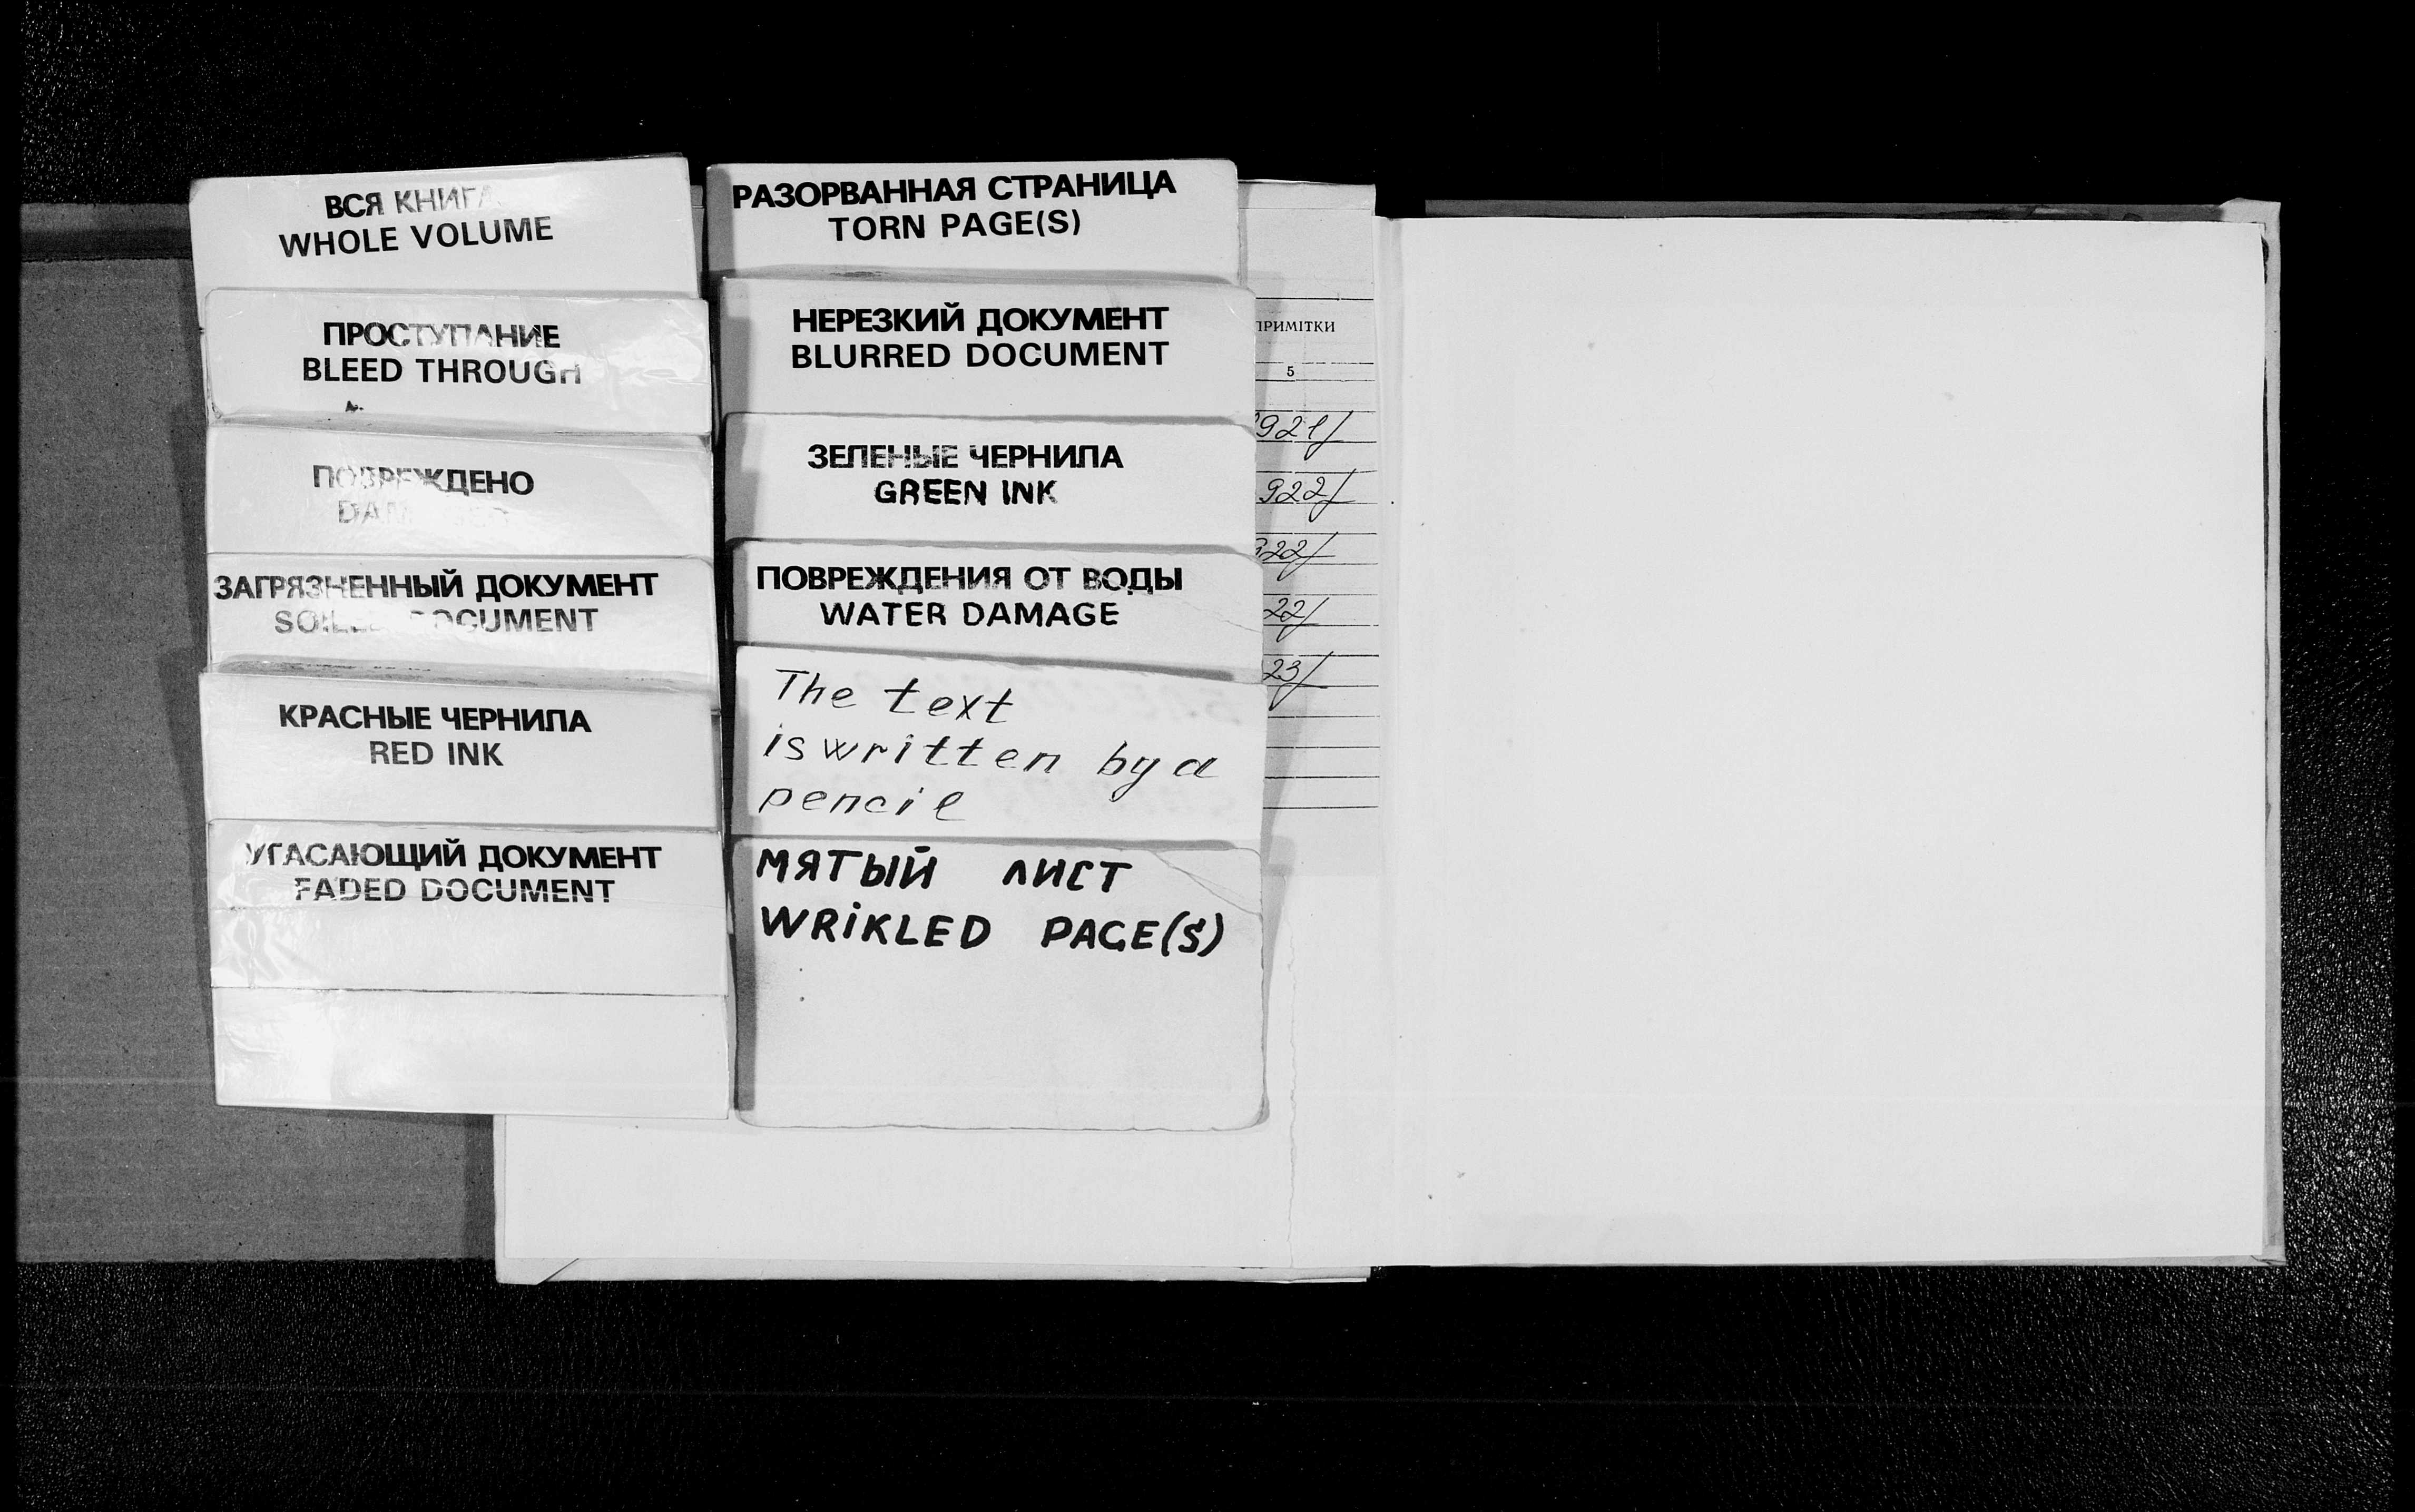 ВСЯ КНИГА
WHOLE VOLUME
ПРОСТУПАНИЕ
BLEED THROUGH
ПОВРЕЖДЕНО
DAMAGED
ЗАГРЯЗНЕННЫЙ ДОКУМЕНТ
SOILED DOCUMENT
КРАСНЫЕ ЧЕРНИЛА
RED INK
УГАСАЮЩИЙ ДОКУМЕНТ
FADED DOCUMENT
РАЗОРВАННАЯ СТРАНИЦА
TORN PAGE(S)
НЕРЕЗКИЙ ДОКУМЕНТ
BLURRED DOCUMENT
ЗЕЛЕНЫЕ ЧЕРНИЛА
GREEN INK
ПОВРЕЖДЕНИЯ ОТ ВОДЫ
WATER DAMAGE
The text
is written by a
pencil
МЯТЫЙ ЛИСТ
WRIKLED PAGE(S)
ПРИМІТКИ
5
921/
922/
922/
22/
23/